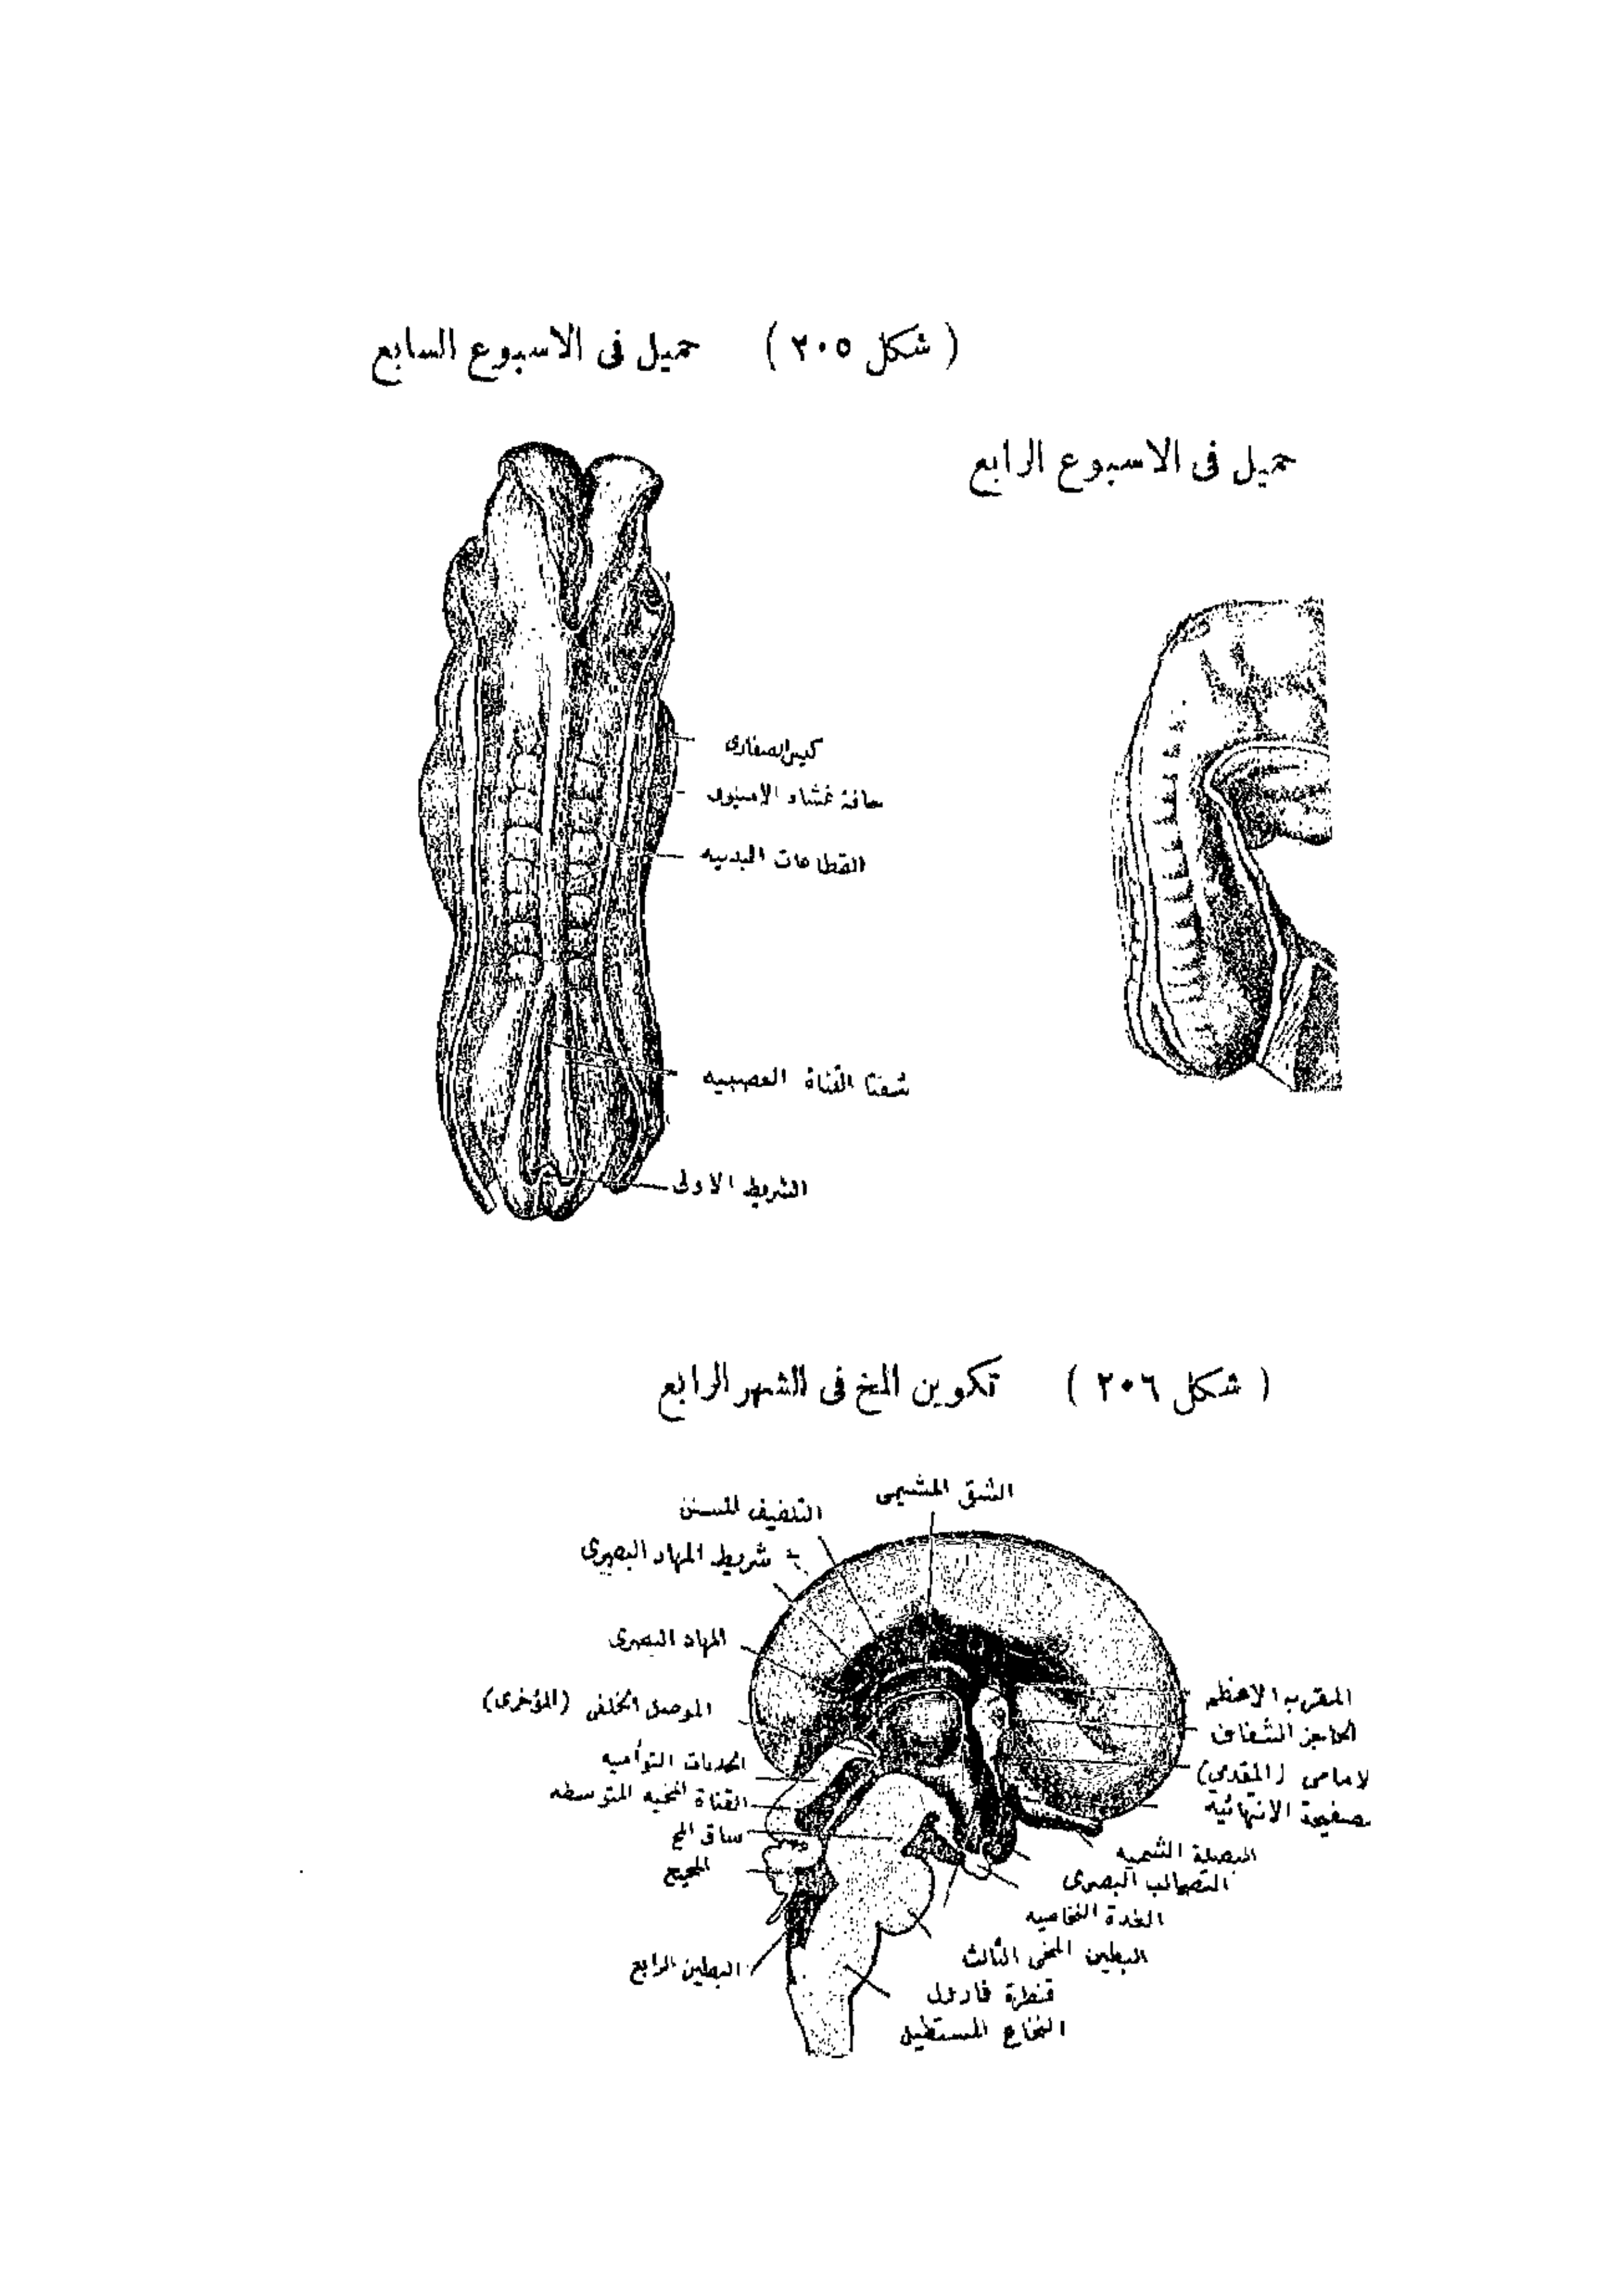 ( شكل ٢٠٥ ) حميل فى الاسبوع السابع
حميل فى الاسبوع الرابع
كيس الصفارى
حافة غشاء الامنيون
القطاعات البدنيه
شفتا القناة العصبيه
الشريط الاولى
( شكل ٢٠٦ ) تكوين المخ فى الشهر الرابع
الشق المشيمى
التلفيف المسنن
شريط المهاد البصرى
المهاد البصرى
الموصل الخلفى (المؤخرى)
الحدبات التوأميه
القناة المخيه المتوسطه
ساق المخ
المخيخ
البطين الرابع
المقرن الاعظم
الحاجز الشفاف
لامامى (المقدمى)
صفيحة الانتهائيه
البصيلة الشميه
التصالب البصرى
الغدة النخاميه
البطين المخى الثالث
قنطرة فارول
النخاع المستطيل